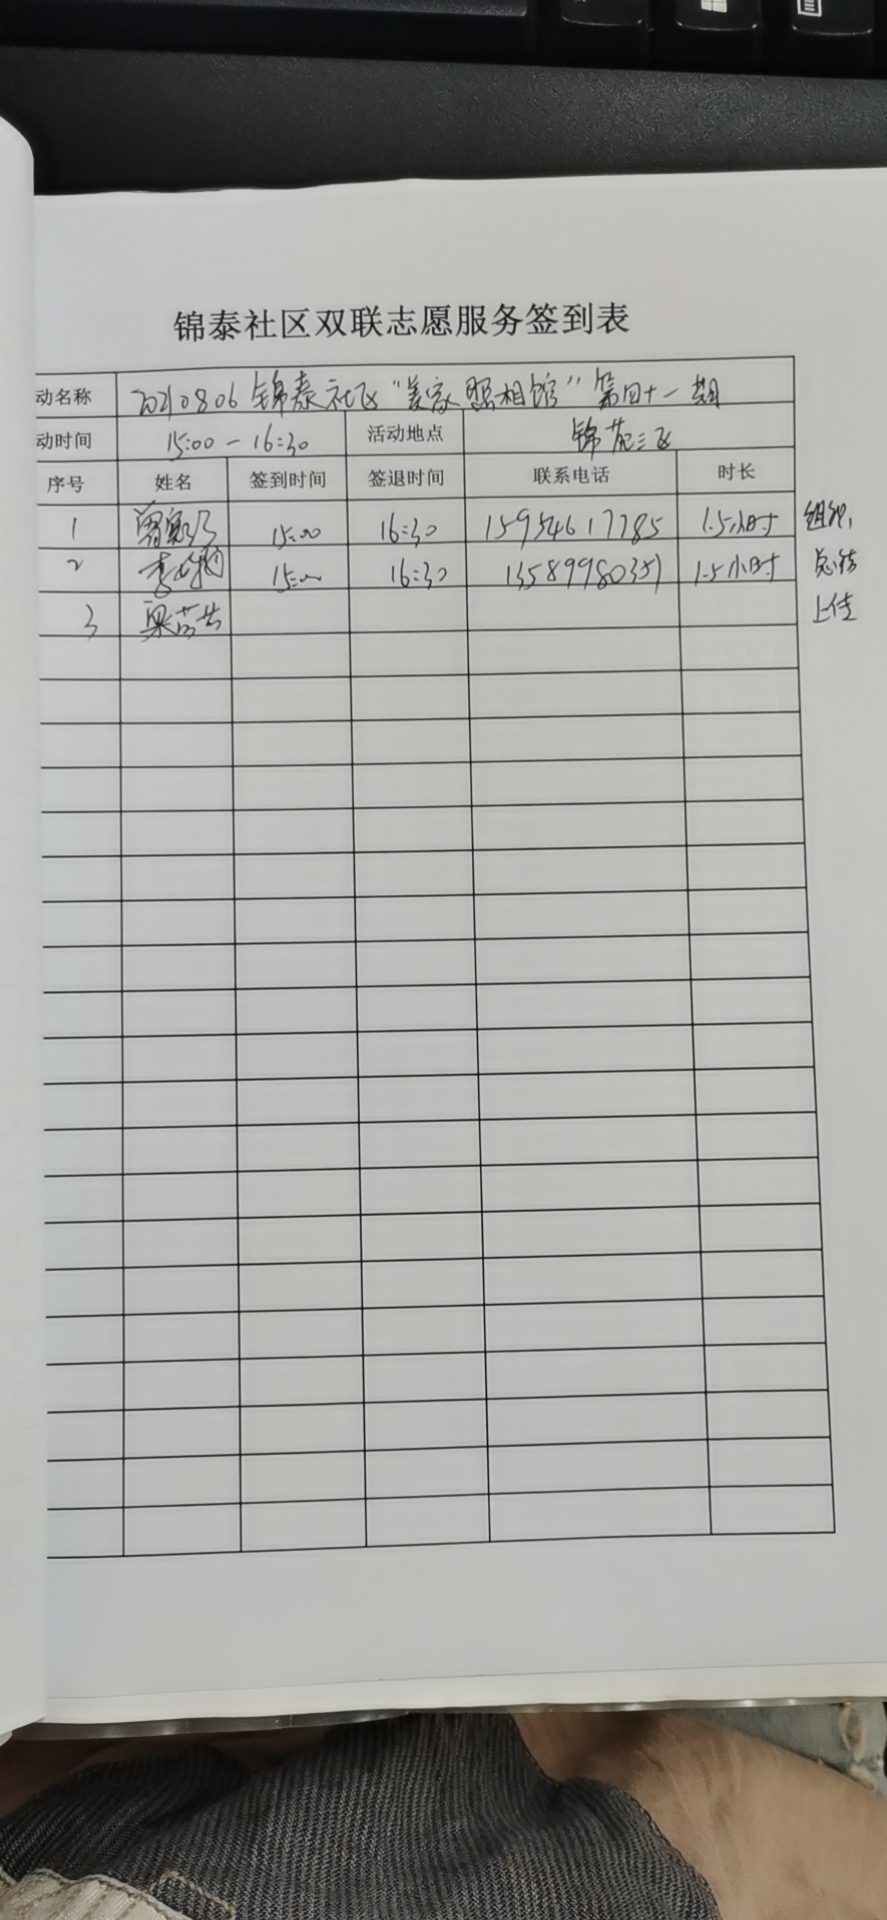 锦泰社区双联志愿服务签到表
动名称 20210806锦泰社区“美家照相馆”第四十一期
动时间 15:00-16:30 活动地点 锦苑三区
序号 姓名 签到时间 签退时间 联系电话 时长
1 15:00 16:30 15954617785 1.5小时 组织,
2 15:00 16:30 13589980351 1.5小时 总结
3 梁芸芸 上传